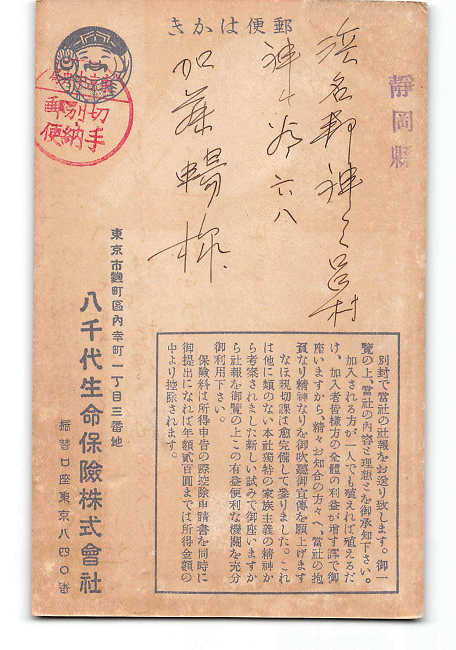 郵便はかき
靜岡縣
浜名郡神久呂村
神ヶ谷六八
加藤暢様
切手
別納
郵便
別封で當社の社報をお送り致します。御一
覽の上、當社の內容と理想とを御承知下さい。
加入される方が一人でも殖えれば殖えるだ
け、加入者皆樣方の全體の利益が增す譯で御
座いますから、精々お知合の方々へ、當社の抱
負なり精神なりを御吹聽御宣傳を願上げます
なほ親切課は愈完備して參りました。これ
は他に類のない本社獨特の家族主義の精神か
ら考案されました新しい試みで御座いますか
ら社報を御覽の上この有益便利な機關を充分
御利用下さい。
保險料は所得申告の際控除申請書を同時に
御提出になれば年額貳百圓までは所得金額の
中より控除されます。
東京市麴町區內幸町一丁目三番地
八千代生命保險株式會社
振替口座東京八四〇番